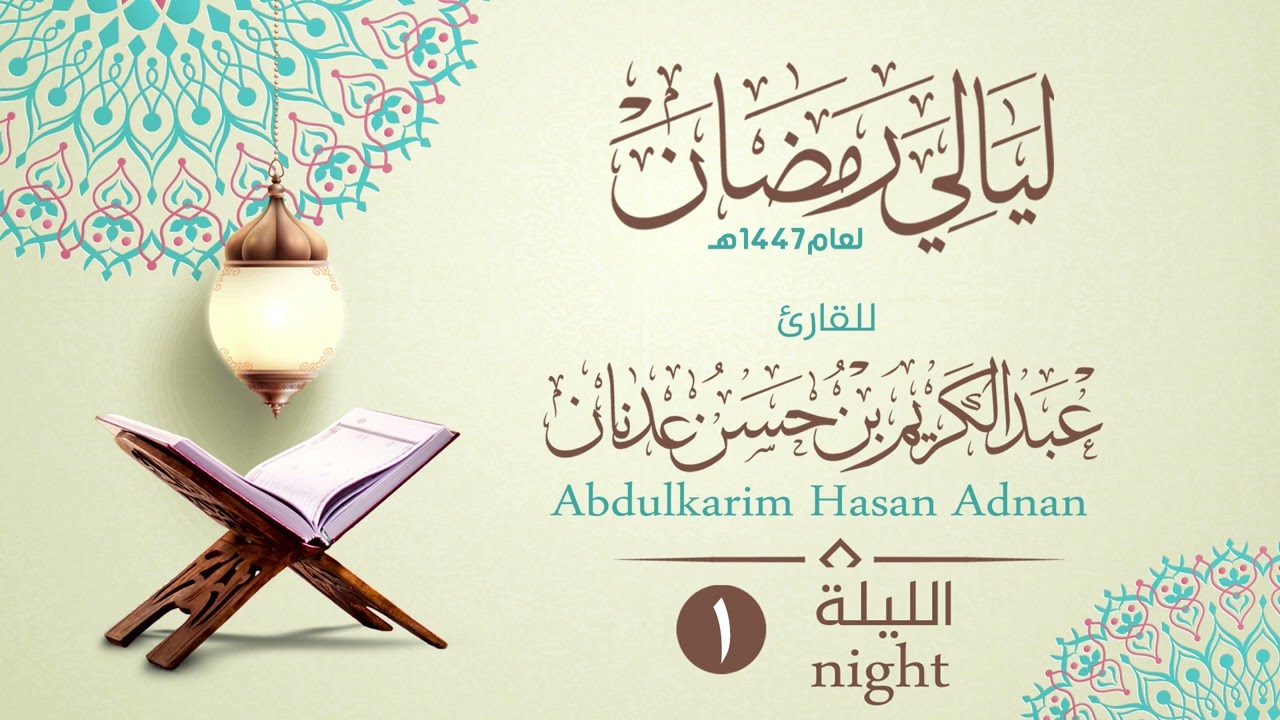 لَيَالِي رَمَضَانَ
لعام1447هـ
للقارئ
عَبْدالكَرِيْم بنْ حَسَنُ عَدْنَان
Abdulkarim Hasan Adnan
الليلة ١
night